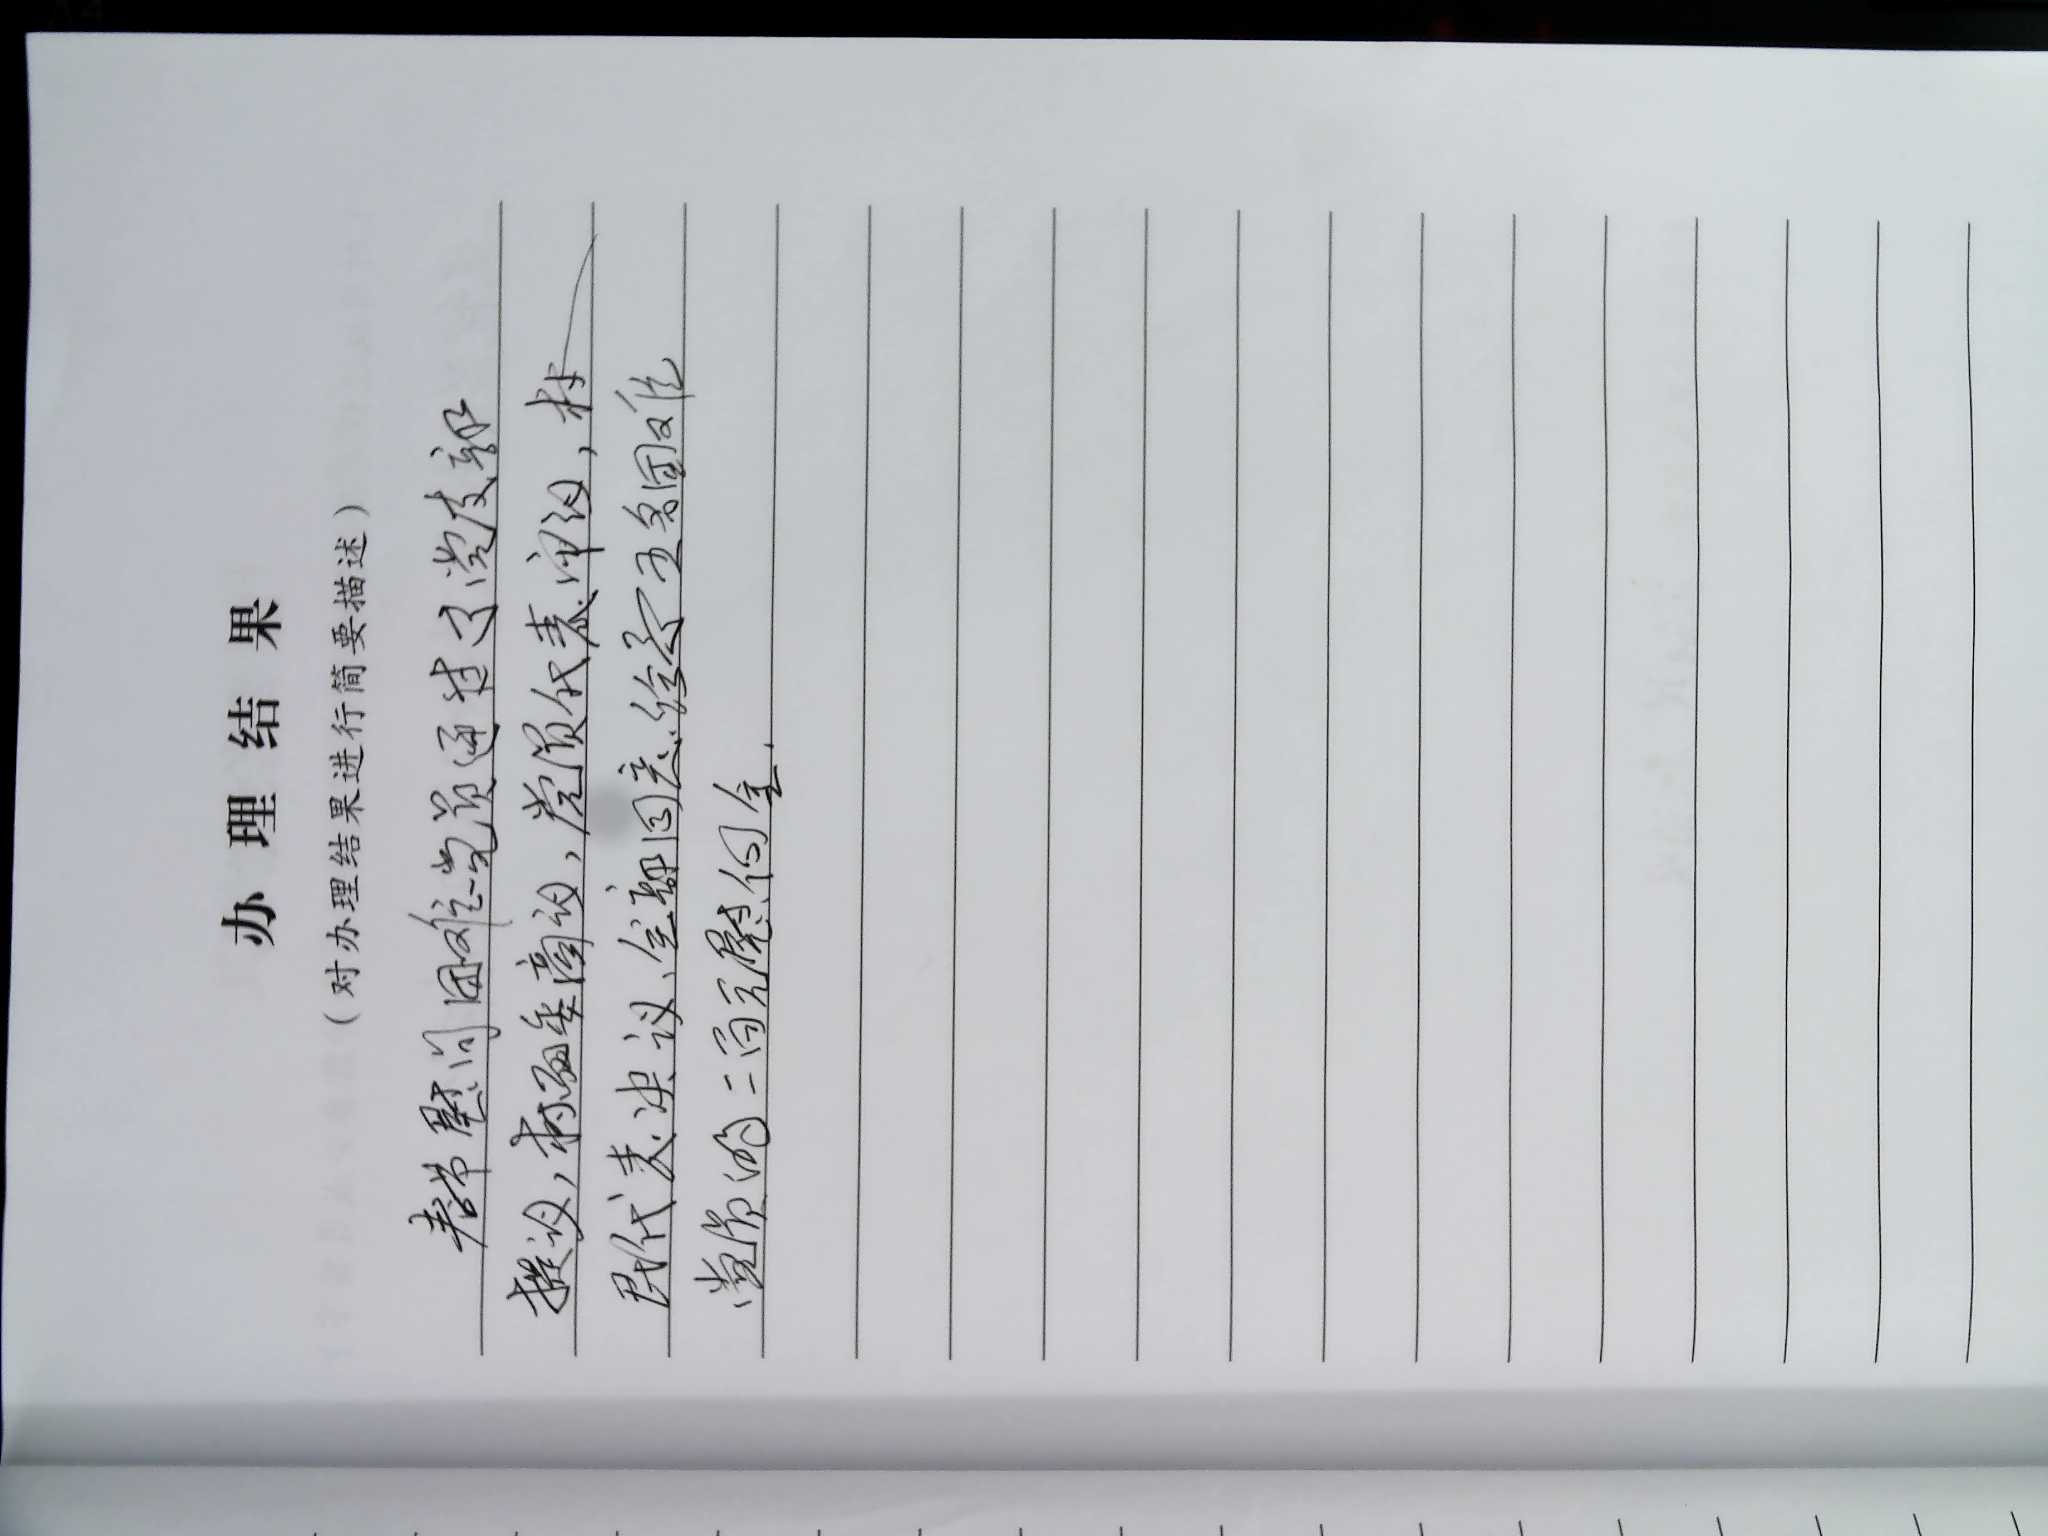 办理结果
（对办理结果进行简要描述）
春节慰问困难党员通过了党支部
提议，村两委商议，党员代表审议，村
民代表决议、全部同意给予五名困难
党员的二百元慰问金.